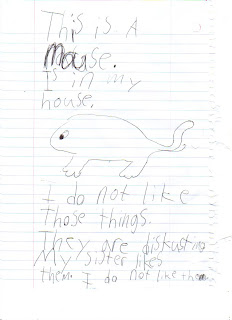 This is A
Mouse.
Is in my
house.
I do not like
Those things.
They are diskusting
My sister likes
them. I do not like them